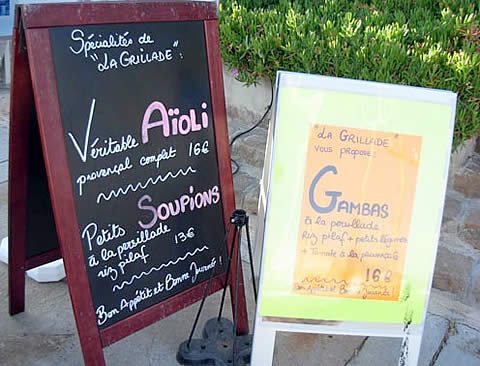 Spécialités de
"LA GRILLADE" :
Véritable AÏOLI
provençal complet 16€
Petits SOUPIONS
à la persillade 13€
riz pilaf
Bon Appétit et Bonne Journée !
"LA GRILLADE"
vous propose :
GAMBAS
à la persillade
riz pilaf + petits légumes
+ Tomate à la provençale
16€
Bon Appétit et Bonne Journée !